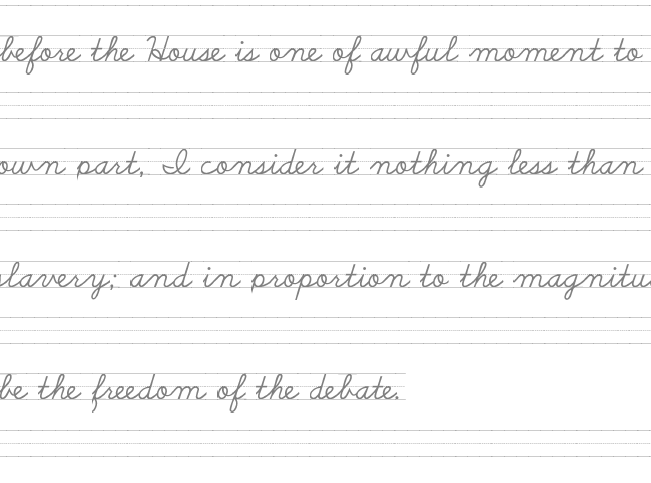 before the House is one of awful moment to
own part, I consider it nothing less than
slavery; and in proportion to the magnitu
be the freedom of the debate.